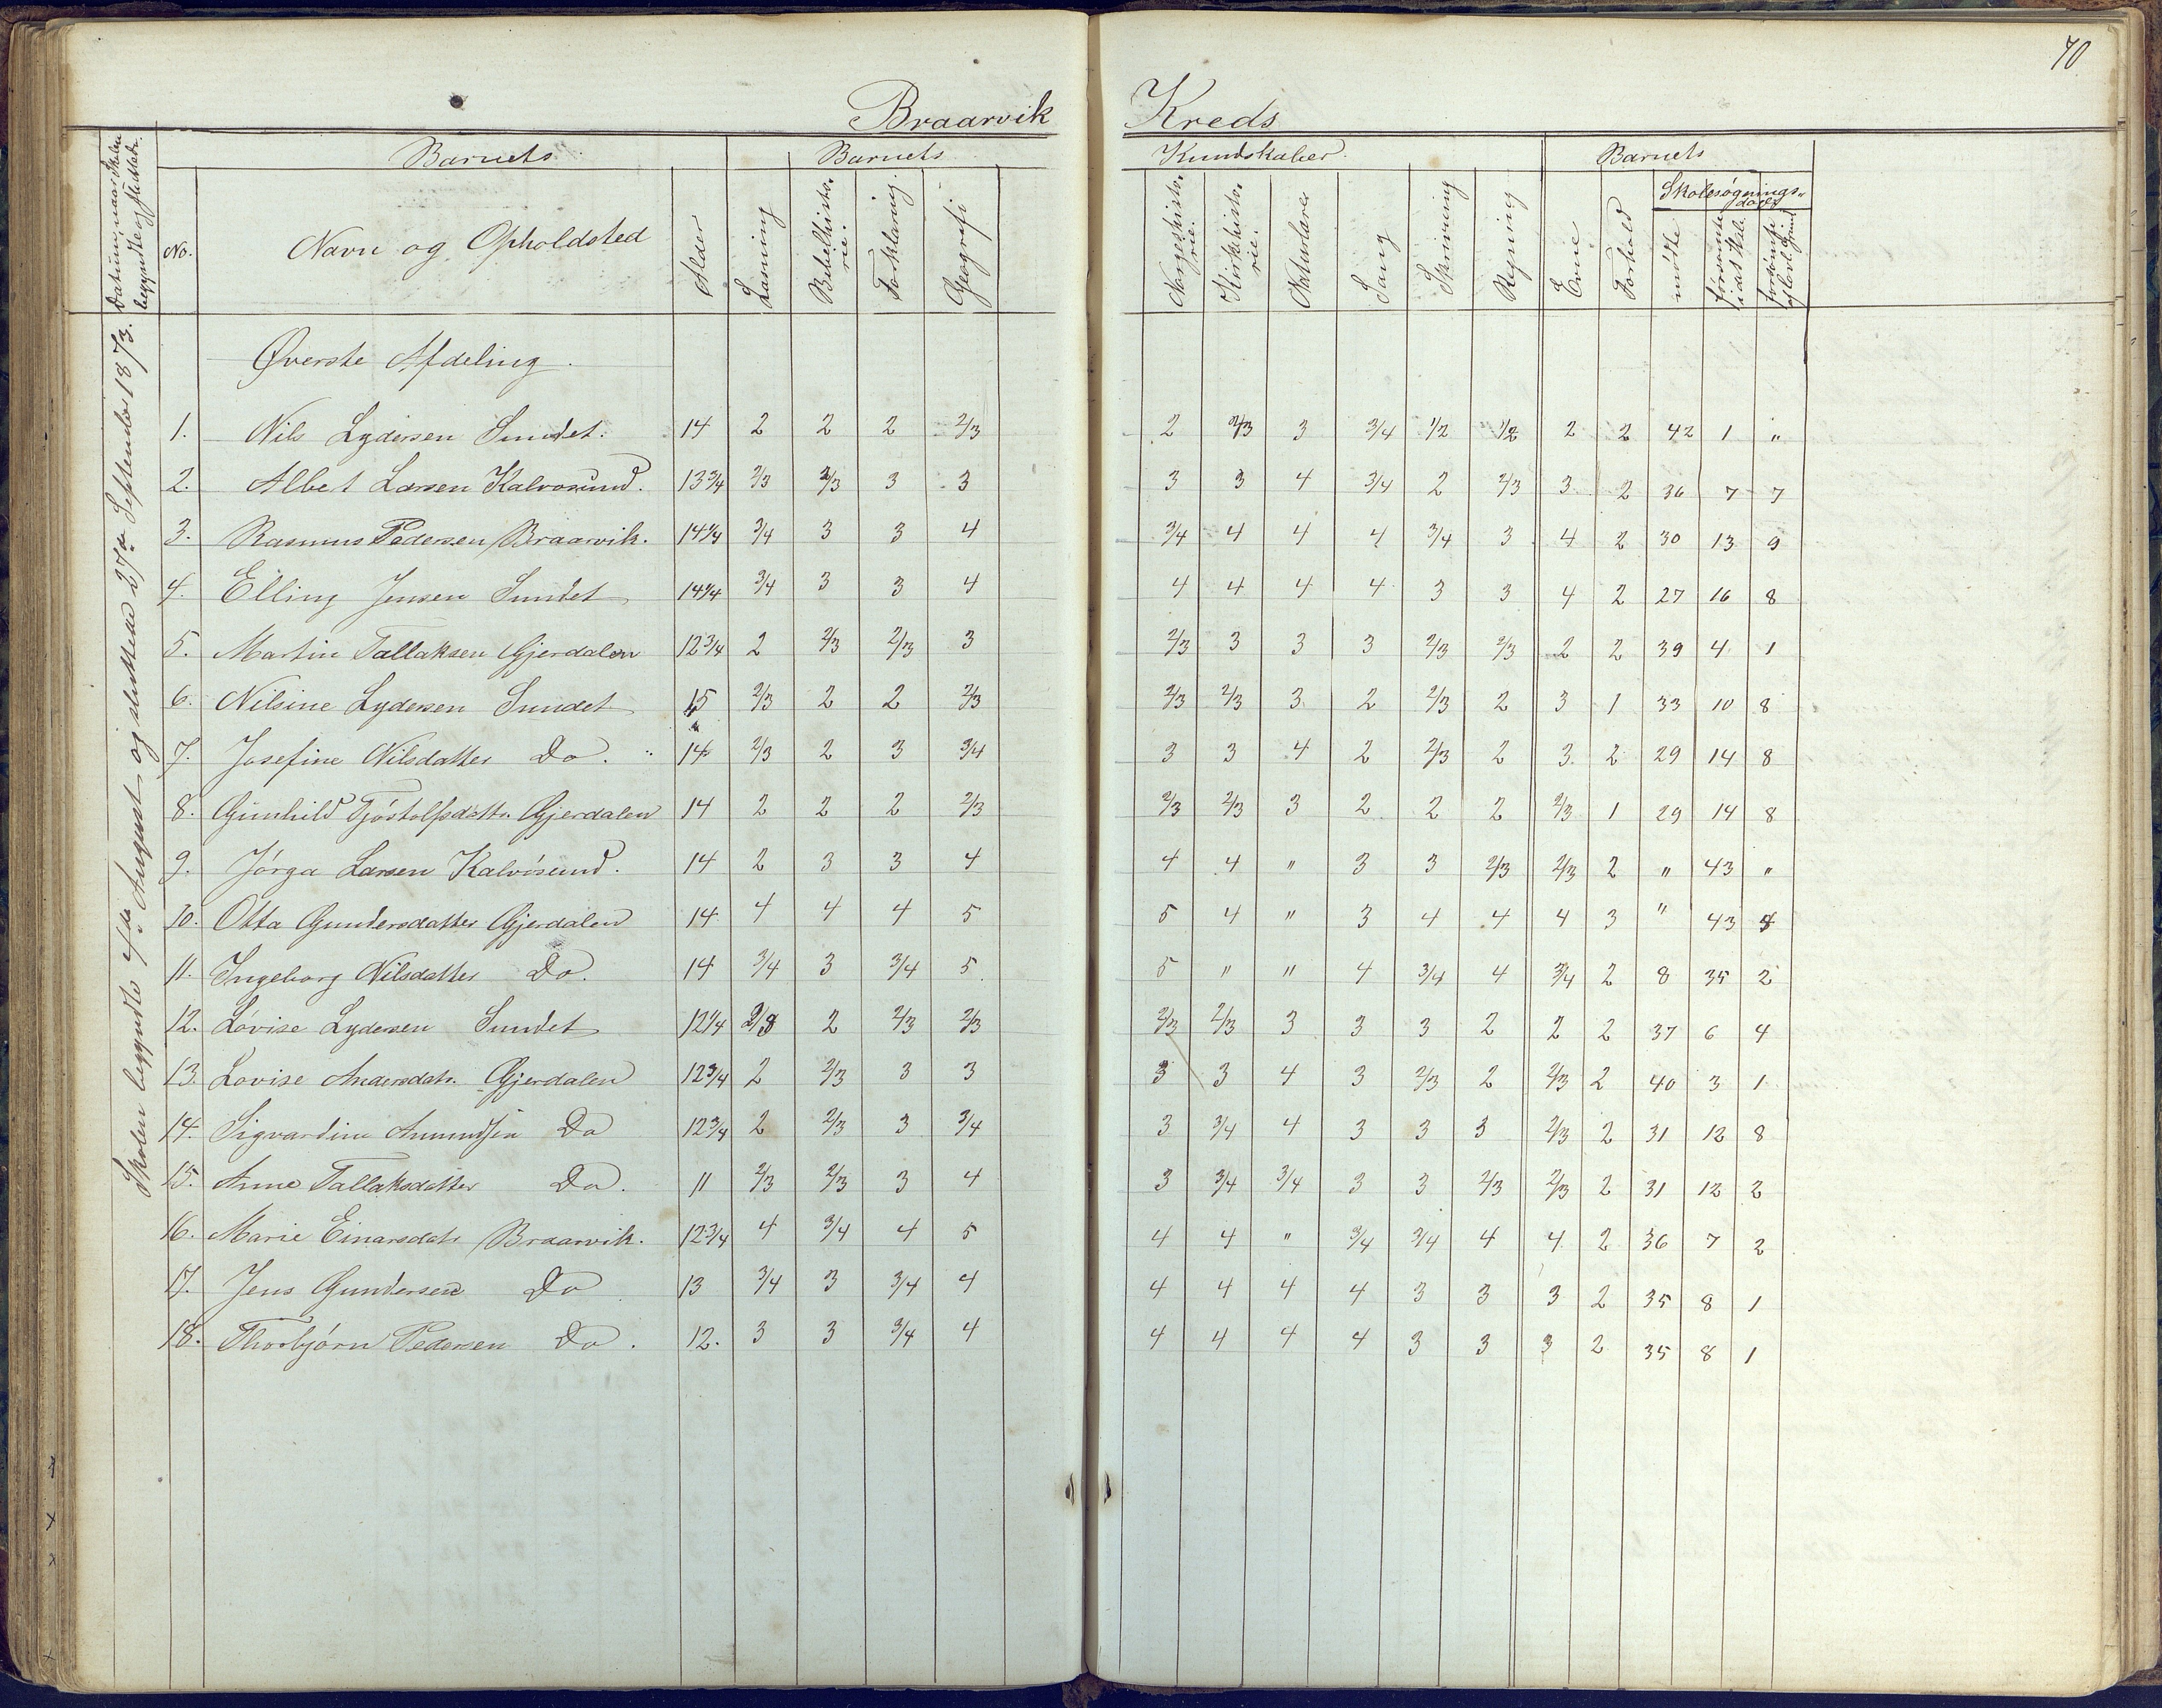 70
Braarvik Kreds
Datum, naar Skolen begyndte og sluttede.
Barnets Barnets Kundskaber. Barnets
No. Navn og Opholdsted Alder Læsning Bibelhistorie. Forklaring. Geografi Norgeshistorie. Kirkehistorie. Naturlære Sang Skrivning Regning Evne Forhold Skolesøgningsdage mödte forsömte i det Hele forsömte af lovl. Grund
Skolen begyndte 4de August og sluttede 27de September 1873.
Øverste Afdeling.
1. Nils Lydersen Sundet. 14 2 2 2 2/3 2 2/3 3 3/4 1/2 1/2 2 2 42 1 "
2. Albert Larsen Kalvösund. 13 3/4 2/3 2/3 3 3 3 3 4 3/4 2 2/3 3 2 36 7 7
3. Rasmus Pedersen Braarvik. 14 1/4 3/4 3 3 4 3/4 4 4 4 3/4 3 4 2 30 13 9
4. Elling Jensen Sundet 14 1/4 3/4 3 3 4 4 4 4 4 3 3 4 2 27 16 8
5. Martin Tallaksen Gjerdalen 12 3/4 2 2/3 2/3 3 2/3 3 3 3 2/3 2/3 2 2 39 4 1
6. Nilsine Lydersen Sundet 15 2/3 2 2 2/3 2/3 2/3 3 2 2/3 2 3 1 33 10 8
7. Josefine Nilsdatter Do. 14 2/3 2 3 3/4 3 3 4 2 2/3 2 3 2 29 14 8
8. Gunhild Tjöstolfsdattr. Gjerdalen 14 2 2 2 2/3 2/3 2/3 3 2 2 2 2/3 1 29 14 8
9. Jörga Larsen Kalvösund. 14 2 3 3 4 4 4 " 3 3 2/3 2/3 2 " 43 "
10. Otta Gundersdatter Gjerdalen 14 4 4 4 5 5 4 " 3 4 4 4 3 " 43
11. Ingeborg Nilsdatter Do. 14 3/4 3 3/4 5 5 " " 4 3/4 4 3/4 2 8 35 2
12. Lövise Lydersen Sundet 12 1/4 2/3 2 2/3 2/3 2/3 2/3 3 3 3 2 2 2 37 6 4
13. Lovise Andersdatr. Gjerdalen 12 3/4 2 2/3 3 3 3 3 4 3 2/3 2 2/3 2 40 3 1
14. Sigvardine Amundsen Do 12 3/4 2 2/3 3 3/4 3 3/4 4 3 3 3 2/3 2 31 12 8
15. Anne Tallaksdatter Do. 11 2/3 2/3 3 4 3 3/4 3/4 3 3 2/3 2/3 2 31 12 2
16. Marie Einarsdatr Braarvik. 12 3/4 4 3/4 4 5 4 4 " 3/4 3/4 4 4 2 36 7 2
17. Jens Gundersen Do 13 3/4 3 3/4 4 4 4 4 4 3 3 3 2 35 8 1
18. Thorbjörn Pedersen Do. 12. 3 3 3/4 4 4 4 4 4 3 3 3 2 35 8 1